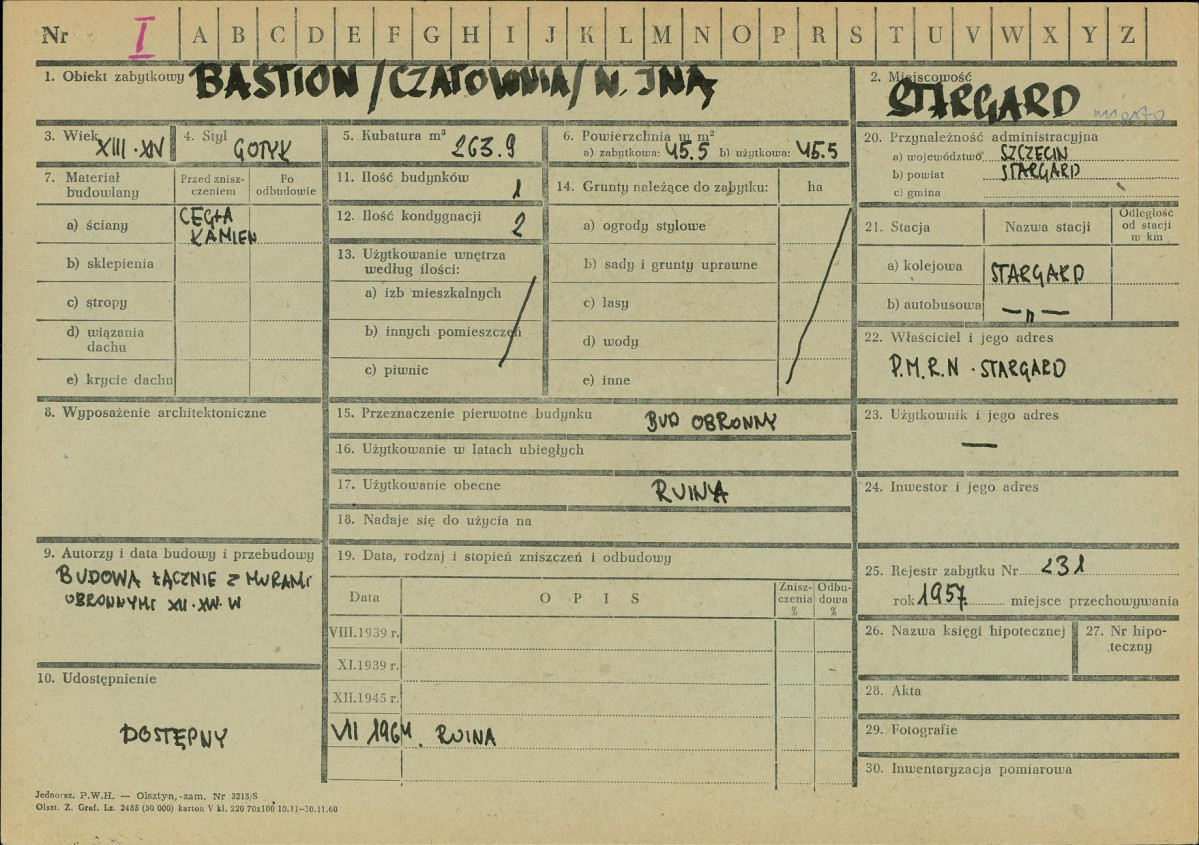 Nr I A B C D E F G H I J K L M N O P R S T U V W X Y Z
1. Obiekt zabytkowy BASTION /CZATOWNIA/ N. INĄ
2. Miejscowość
STARGARD miasto
3. Wiek
XIII-XIV
4. Styl
GOTYK
5. Kubatura m³ 263.9
6. Powierzchnia w m²
a) zabytkowa: 45.5 b) użytkowa: 45.5
7. Materiał budowlany
Przed zniszczeniem
Po odbudowie
a) ściany CEGŁA
KAMIEŃ
b) sklepienia
c) stropy
d) wiązania dachu
e) krycie dachu
8. Wyposażenie architektoniczne
9. Autorzy i data budowy i przebudowy
BUDOWA ŁĄCZNIE Z MURAMI
OBRONNYMI XII-XIV. W
10. Udostępnienie
DOSTĘPNY
11. Ilość budynków 1
12. Ilość kondygnacji 2
13. Użytkowanie wnętrza
według ilości:
a) izb mieszkalnych
b) innych pomieszczeń
c) piwnic
14. Grunty należące do zabytku: ha
a) ogrody stylowe
b) sady i grunty uprawne
c) lasy
d) wody
e) inne
15. Przeznaczenie pierwotne budynku BUD OBRONNY
16. Użytkowanie w latach ubiegłych
17. Użytkowanie obecne RUINA
18. Nadaje się do użycia na
19. Data, rodzaj i stopień zniszczeń i odbudowy
Data OPIS Zniszczenia % Odbudowa %
VIII.1939 r.
XI.1939 r.
XII.1945 r.
VII 1964. RUINA
20. Przynależność administracyjna
a) województwo SZCZECIN
b) powiat STARGARD
c) gmina
21. Stacja Nazwa stacji Odległość od stacji w km
a) kolejowa STARGARD
b) autobusowa —„—
22. Właściciel i jego adres
P.M.R.N. STARGARD
23. Użytkownik i jego adres
—
24. Inwestor i jego adres
25. Rejestr zabytku Nr 231
rok 1957. miejsce przechowywania
26. Nazwa księgi hipotecznej
27. Nr hipoteczny
28. Akta
29. Fotografie
30. Inwentaryzacja pomiarowa
Jednoraz. P.W.H. — Olsztyn,-zam. Nr 3215/S
Olszt. Z. Graf. Lz. 2485 (30 000) karton V kl. 220 70x100 10.11—30.11.60